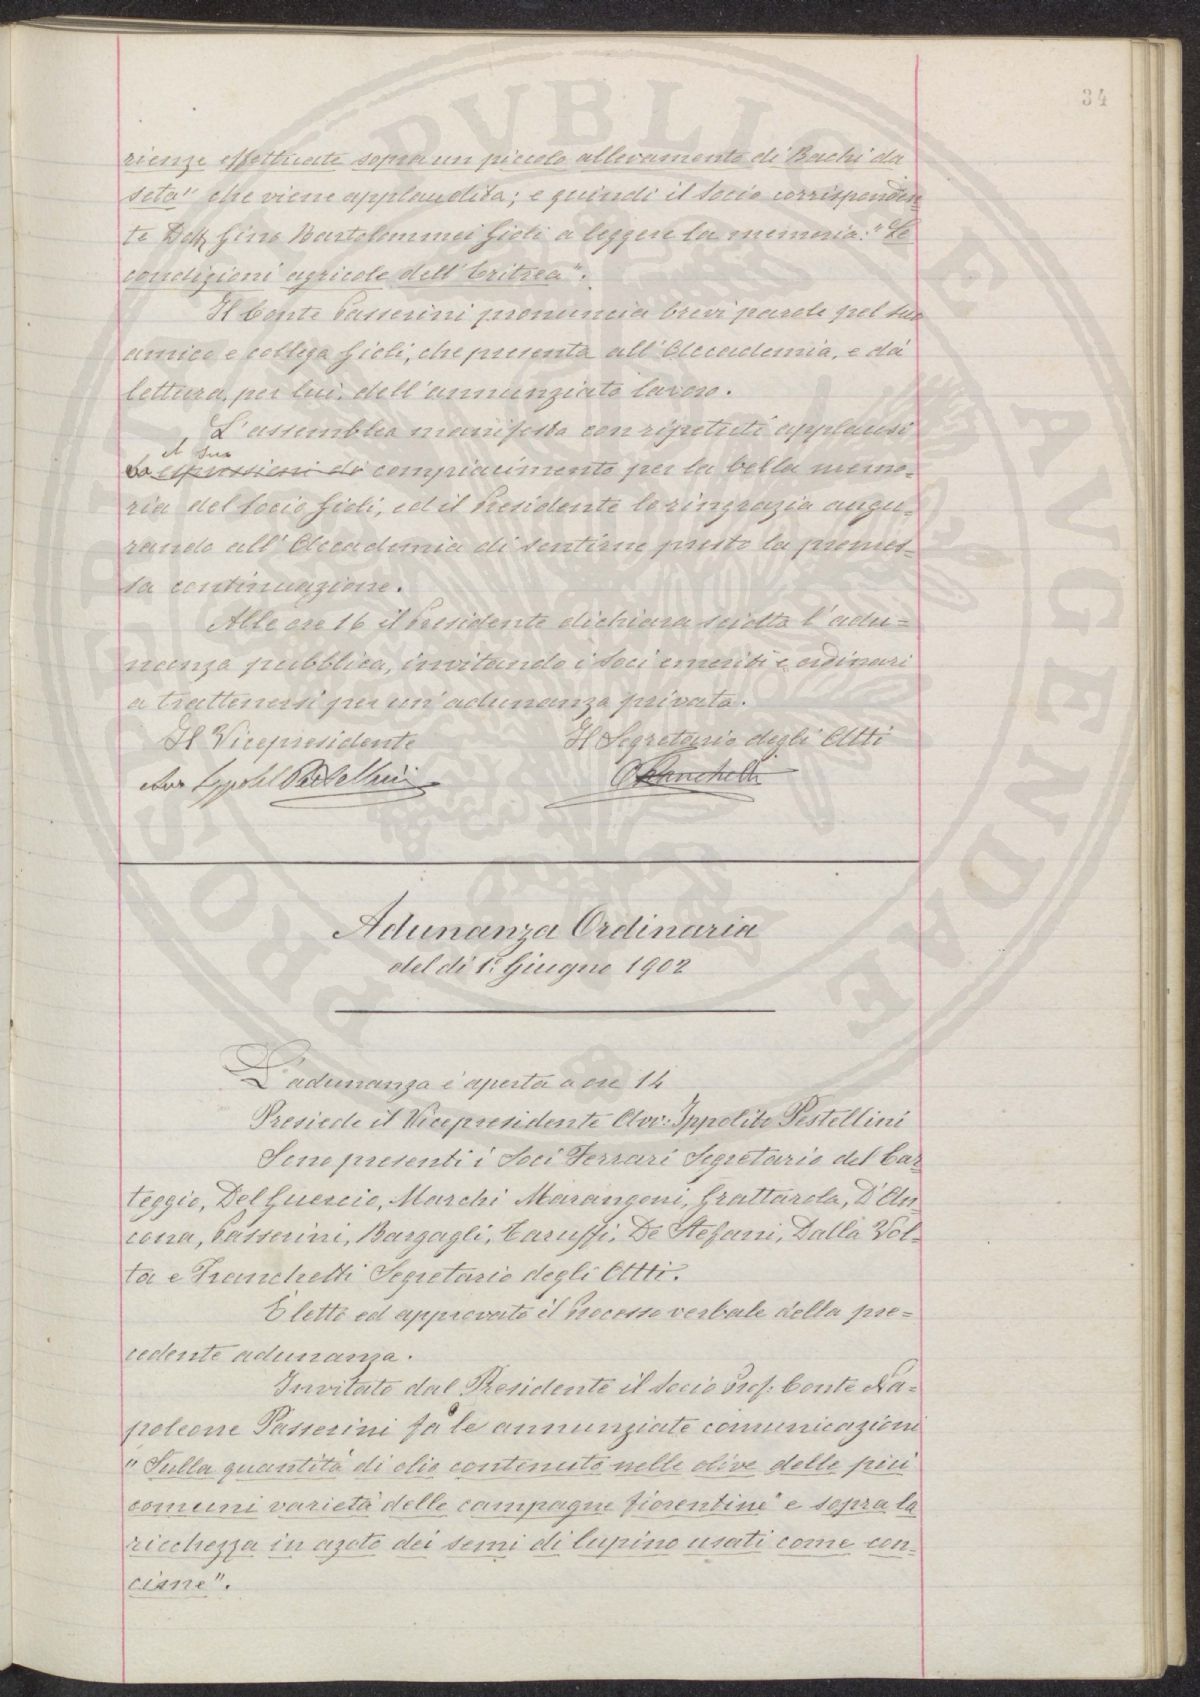 34
rienze effettuate sopra un piccolo allevamento di Bachi da
seta" che viene applaudita; e quindi il Socio corrisponden-
te Dott. Gino Bartolommei Gioli a leggere la memoria: "Le
condizioni agricole dell'Eritrea".
Il Conte Passerini pronuncia brevi parole pel suo
amico e collega Gioli, che presenta all'Accademia, e dà
lettura, per lui, dell'annunziato lavoro.
L'assemblea manifesta con ripetuti applausi
il suo
espressioni di compiacimento per la bella memo-
ria del Socio Gioli, ed il Presidente lo ringrazia augu-
rando all'Accademia di sentirne presto la promes-
sa continuazione.
Alle ore 16 il Presidente dichiara sciolta l'adu=
nanza pubblica, invitando i Soci emeriti e ordinari
a trattenersi per un'adunanza privata.
Il Vicepresidente Il Segretario degli Atti
Avv Ippolito Pestellini Franchetti
Adunanza Ordinaria
del dì 1º Giugno 1902
L'adunanza è aperta a ore 14
Presiede il Vicepresidente Avv: Ippolito Pestellini
Sono presenti i Soci Ferrari Segretario del Car-
teggio, Del Guercio, Marchi Marangoni, Grattarola, D'An-
cona, Passerini, Bargagli, Caruffi, De Stefani, Dalla Vol-
ta e Franchetti Segretario degli Atti.
È letto ed approvato il Processo verbale della pre=
cedente adunanza.
Invitato dal Presidente il Socio Prof. Conte Na=
poleone Passerini fa le annunziate comunicazioni
"Sulla quantità di olio contenuto nelle olive delle più
comuni varietà delle campagne fiorentine" e sopra la
ricchezza in azoto dei semi di lupino usati come con-
cime".
PROSPERITATI PVBLICAE AVGENDAE